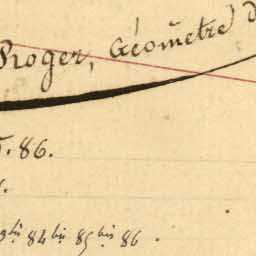 Roger, Géomètre d
. 86.
bis 84 bis 85 bis 86 .